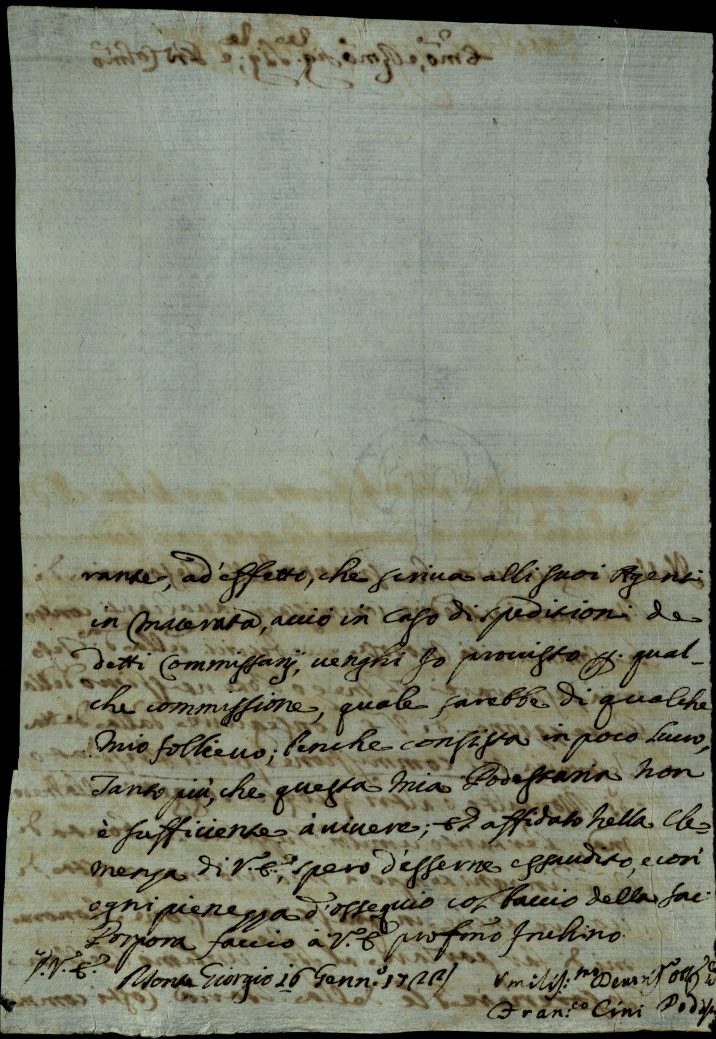 rante, ad'effetto, che scriva alli suoi Agenti
in Macerata, acciò in caso di speditioni de
detti Commissarij, venghi Io provisto p. qual-
che commissione, quale sarebbe di qualche
mio sollievo; benche consista in poco lucro,
Tanto più, che questa mia Podestaria non
è sufficiente à vivere; et affidato nella Cle-
menza di V.E., spero d'esserne essaudito, e con
ogni pienezza d'ossequio col baccio della Sac.
Porpora faccio à V.E. profmo Inchino.
D. V. E. Monte Giorgio 16 Gennro 17
Vmilis.mo Devmo
Fran.co Cini Podes